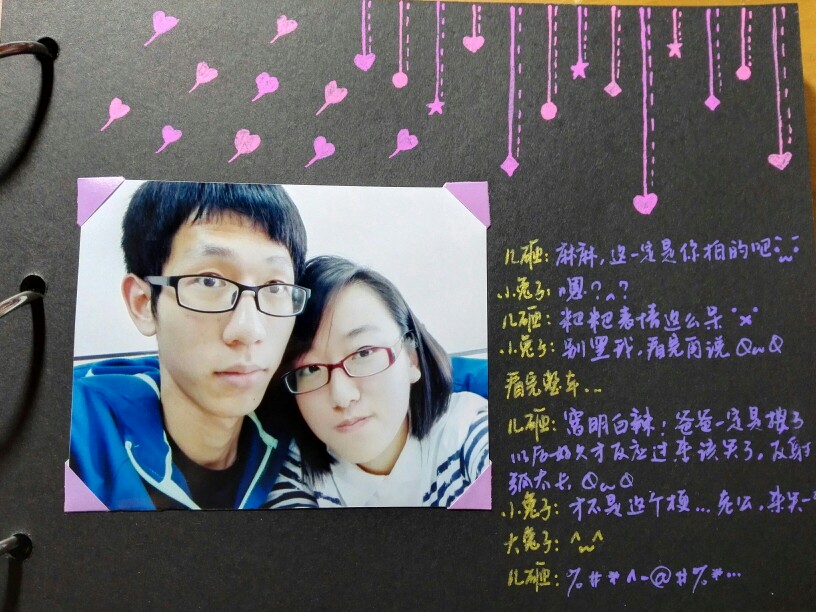 儿砸：麻麻，这一定是你拍的吧
小兔子：嗯？^？
儿砸：粑粑表情这么呆 °x°
小兔子：别黑我，看完再说 QwQ
看完整本...
儿砸：窝明白辣！爸爸一定是搜了
以后好久才反应过来该笑了，反射
弧太长 QwQ
小兔子：才不是这个梗...老公，来笑一
大兔子：^w^
儿砸：%#*^-@#%*...